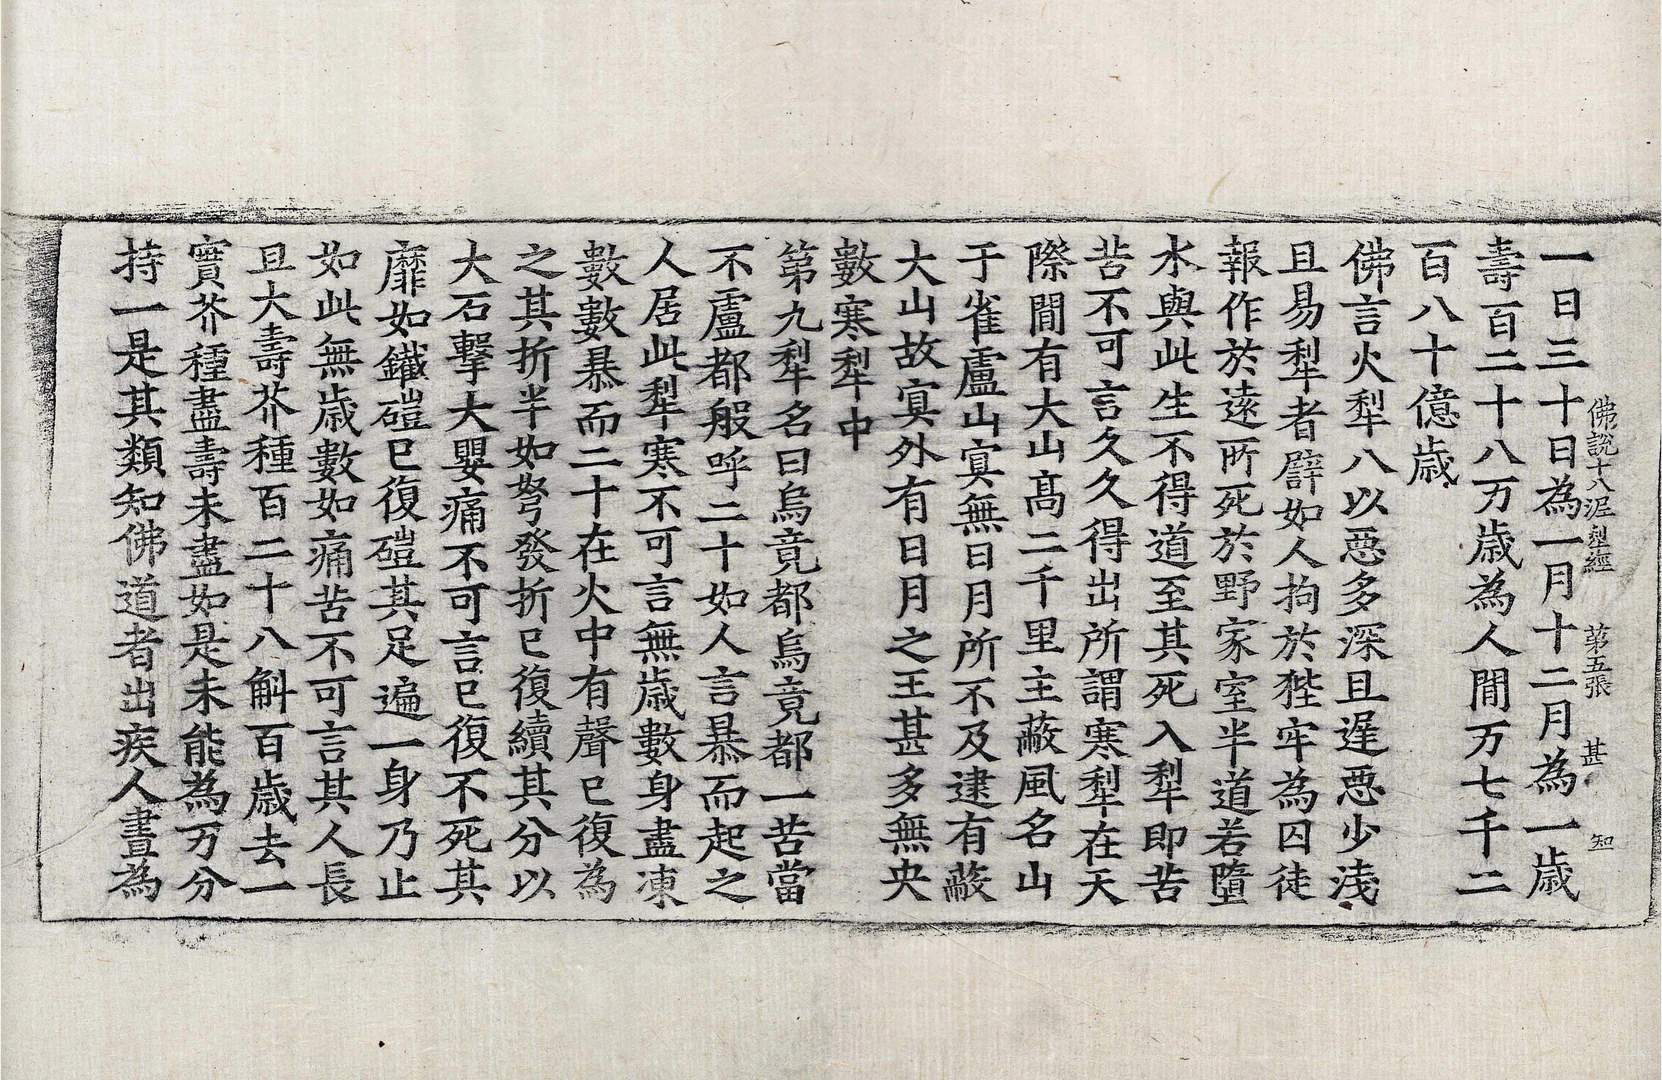 佛說十八泥犁經　第五張　甚　知
一日三十日為一月十二月為一歲
壽百二十八万歲為人間万七千二
百八十億歲
佛言火犁八以惡多深且遅惡少淺
且易犁者譬如人拘於狴牢為囚徒
報作於遠所死於野家室半道若墮
水與此生不得道至其死入犁即苦
苦不可言久久得出所謂寒犁在天
際間有大山髙二千里主蔽風名山
于雀盧山寘無日月所不及逮有蔽
大山故寘外有日月之王甚多無央
數寒犁中
第九犁名曰烏竟都烏竟都一苦當
不盧都般呼二十如人言暴而起之
人居此犁寒不可言無歲數身盡凍
數數暴而二十在火中有聲已復為
之其折半如弩發折已復續其分以
大石擊大嬰痛不可言已復不死其
靡如鐵磑已復磑其足遍一身乃止
如此無歲數如痛苦不可言其人長
且大壽芥種百二十八斛百歲去一
實芥種盡壽未盡如是未能為万分
持一是其類知佛道者出疾人晝為